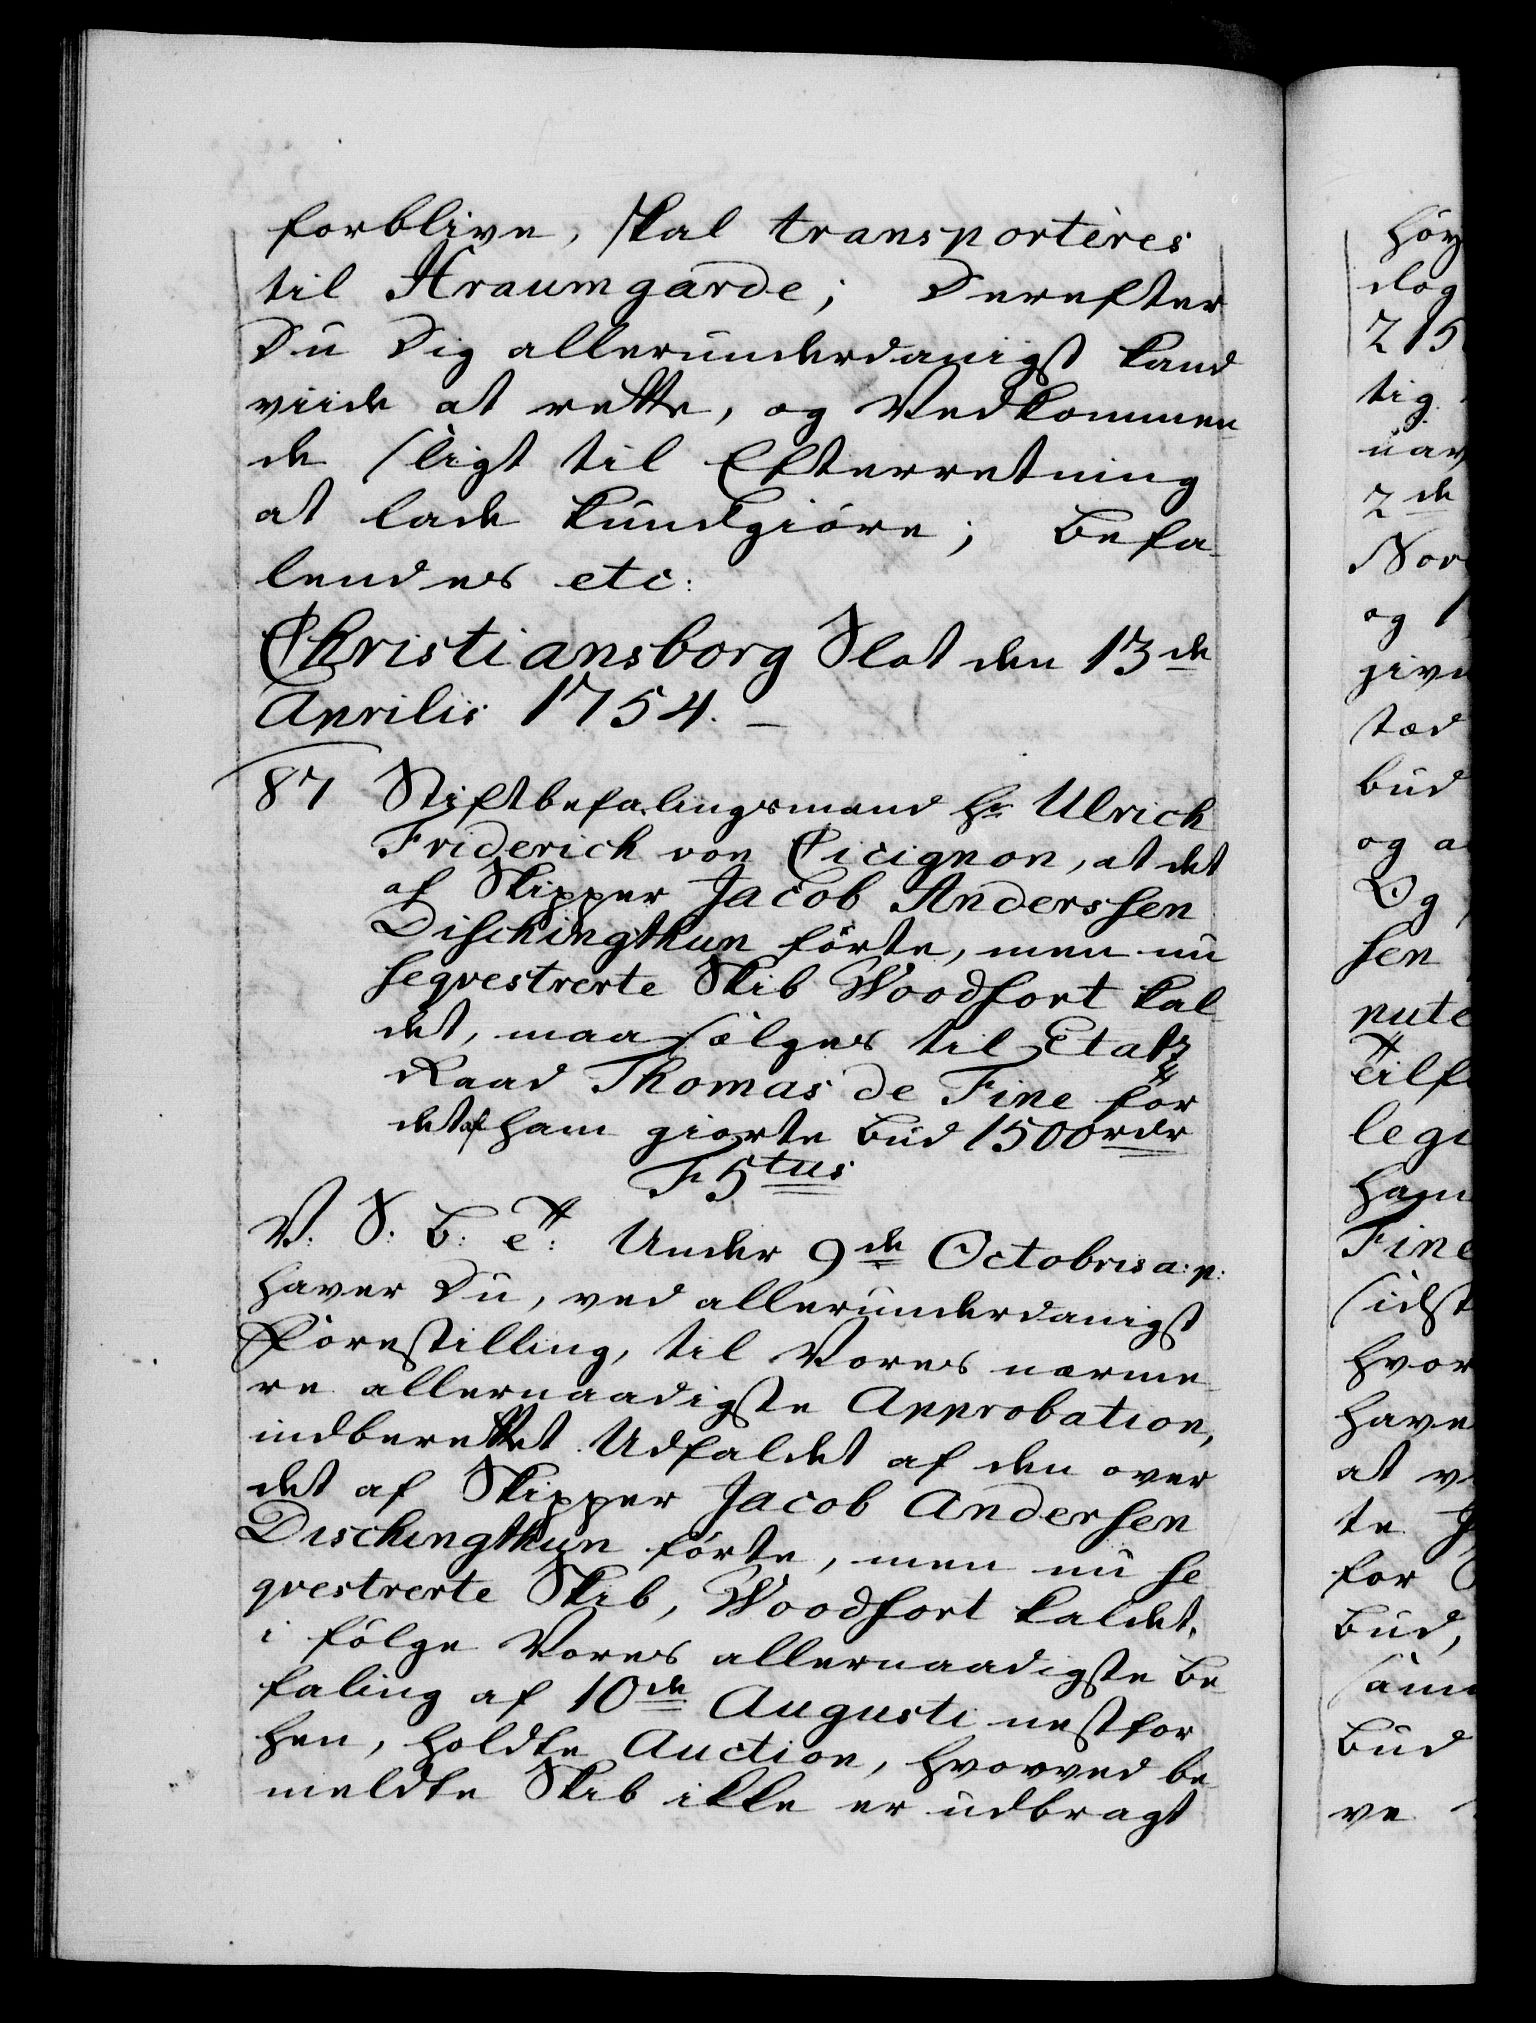 forblive, skal transporteres
til Hraumgarde; Derefter
Du Dig allerunderdanigst kand
viide at rette, og Vedkommen¬
de sligt til Efterretning
at lade kundgiøre; Befa¬
lendes etc:
Christiansborg Slot den 13de
Aprilis 1754. –
87 Stiftbefalingsmand Hr Ulrich
Friderich von Cicignon, at det
af Skipper Jacob Anderssen
Dischingthun førte, men nu
seqvestrerte Skib Woodfort kal¬
det, maa sælges til Etatz
Raad Thomas de Fine for
det af ham giorte Bud 1500 rdr
F 5tus
V. S: B: et: Under 9de Octobris a: p:
haver Du, ved allerunderdanigst
Forestilling, til Vores nærme¬
re allernaadigste Approbation,
indberettet Udfaldet af den over
det af Skipper Jacob Andersen
Dischingthun førte, men nu se
qvestrerte Skib, Woodfort kaldet,
i følge Vores allernaadigste Be¬
faling af 10de Augusti nestfor
hen, holdte Auction, hvorved be¬
meldte Skib ikke er udbragt
høy
dog
215
tig
nav
2de
Nor
og
give
tæd
bud
og a
Og
sen
pute
Tilf
legi
ham
Fine
sidst
hvor
have
at v
te
for
Bud,
sam
Bud
ve